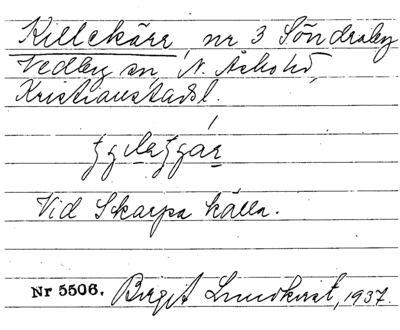 Killekärr, nr 3 Söndraby
Vedby sn, N. Åsbo hd,
Kristianstads l.
Vid Skarpa källa.
Nr 5506. Birgit Lundkvist, 1937.